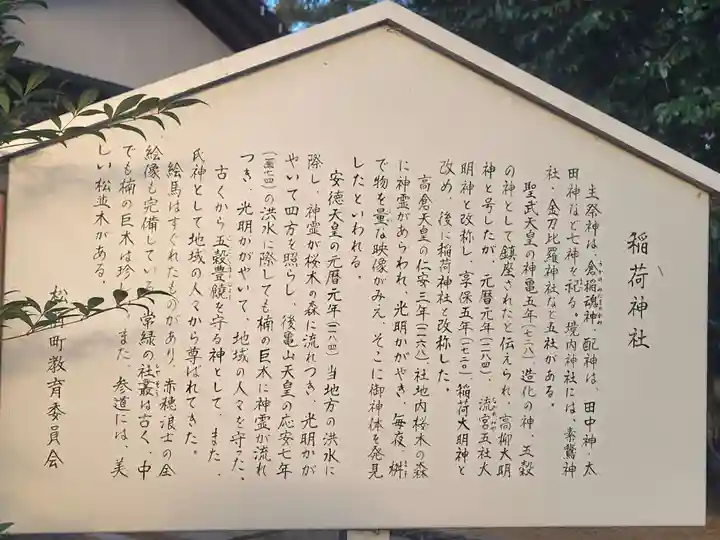 稲荷神社
主祭神は、倉稲魂神、配神は、田中神・太
田神など七神を祀る。境内神社には、素鵞神
社・金刀比羅神社など五社がある。
聖武天皇の神亀五年(七二八)造化の神、五穀
の神として鎮座されたと伝えられ、高柳大明
神と号したが、元暦元年(一一八四)、流宮五社大
明神と改称し、享保五年(一七二〇)稲荷大明神と
改め、後に稲荷神社と改称した。
高倉天皇の仁安三年(一一六八)社地内桜木の森
に神霊があらわれ、光明かがやき、毎夜、桝
で物を量る映像がみえ、そこに御神体を発見
したといわれる。
安徳天皇の元暦元年(一一八四)当地方の洪水に
際し、神霊が桜木の森に流れつき、光明かが
やいて四方を照らし、後亀山天皇の応安七年
(一三七四)の洪水に際しても楠の巨木に神霊が流れ
つき、光明かがやいて、地域の人々を守った。
古くから五穀豊饒を守る神として、また、
氏神として地域の人々から尊ばれてきた。
絵馬はすぐれたものがあり、赤穂浪士の全
絵像も完備している。常緑の社叢は古く、中
でも楠の巨木は珍し、また、参道には、美
しい松並木がある。
松 町教育委員会